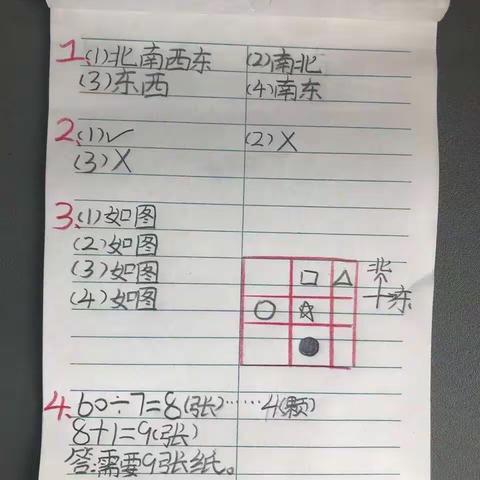 1、(1)北南西东 (2)南北
(3)东西 (4)南东
2、(1)✓ (2)X
(3)X
3、(1)如图
(2)如图
(3)如图
(4)如图
北
东
4、60÷7=8(张)……4(颗)
8+1=9(张)
答:需要9张纸。